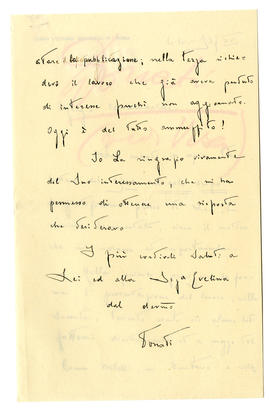 stare la pubblicazione; nella terza richie-
derò il lavoro che già aveva perduto
di interesse perché non aggiornato.
Oggi è del tutto ammuffito!
Io La ringrazio vivamente
del Suo interessamento, che mi ha
permesso di ottenere una risposta
che desideravo
I più cordiali saluti a
Lei ed alla Sig.a Evelina
dal devmo
Donati